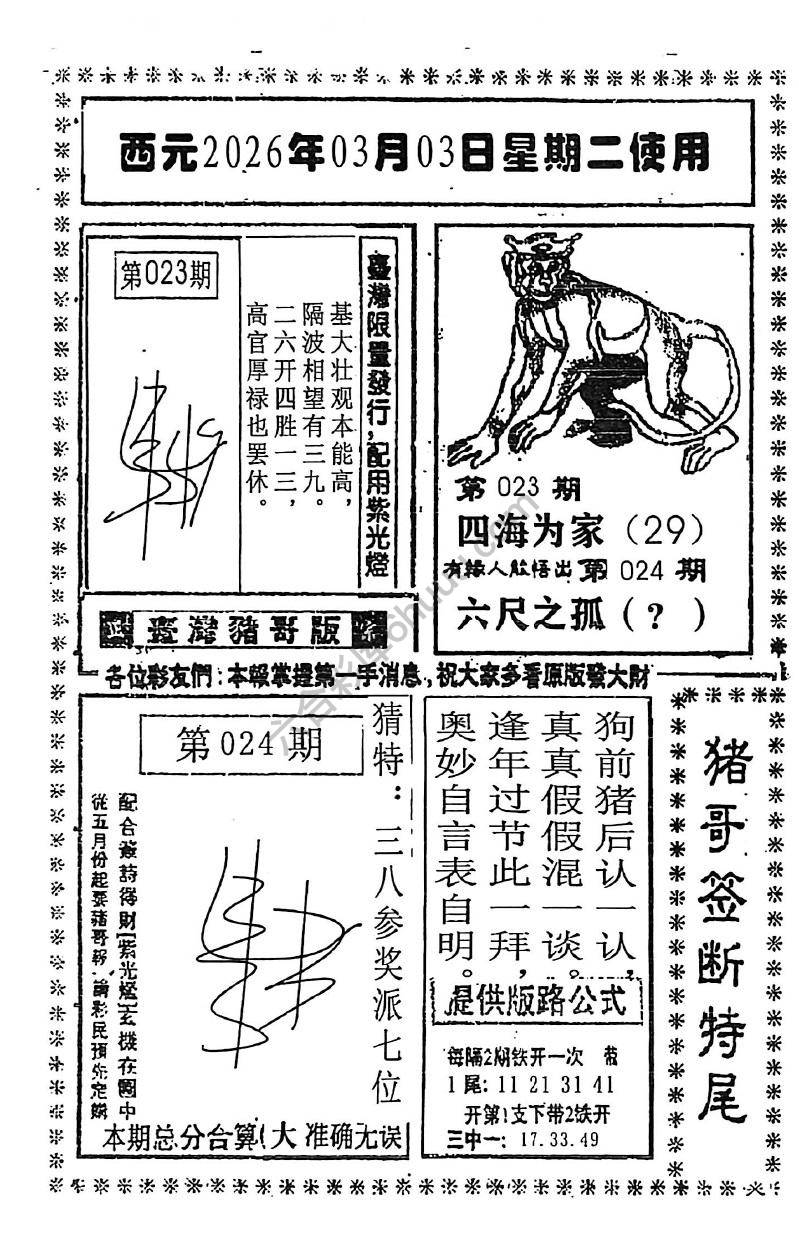 西元2026年03月03日星期二使用
第023期
臺灣限量發行，配用紫光燈
基大壮观本能高，
隔波相望有三九。
二六开四胜一三，
高官厚禄也罢休。
臺灣豬哥版
第 023 期
四海为家（29）
有緣人能悟出第 024 期
六尺之孤（？）
各位彩友們：本報掌握第一手消息，祝大家多看原版發大財
第 024 期
猜特：三八参奖派七位
配合簽詩得財[紫光燈]玄機在圖中
從五月份起豬哥報
彩民預先定購
本期总分合算(大 准确无误
狗前猪后认一认，
真真假假混一谈。
逢年过节此一拜，
奥妙自言表自明。
提供版路公式
每隔2期铁开一次
1尾: 11 21 31 41
开第1支下带2铁开
三中一: 17.33.49
猪哥签断特尾
六合彩库